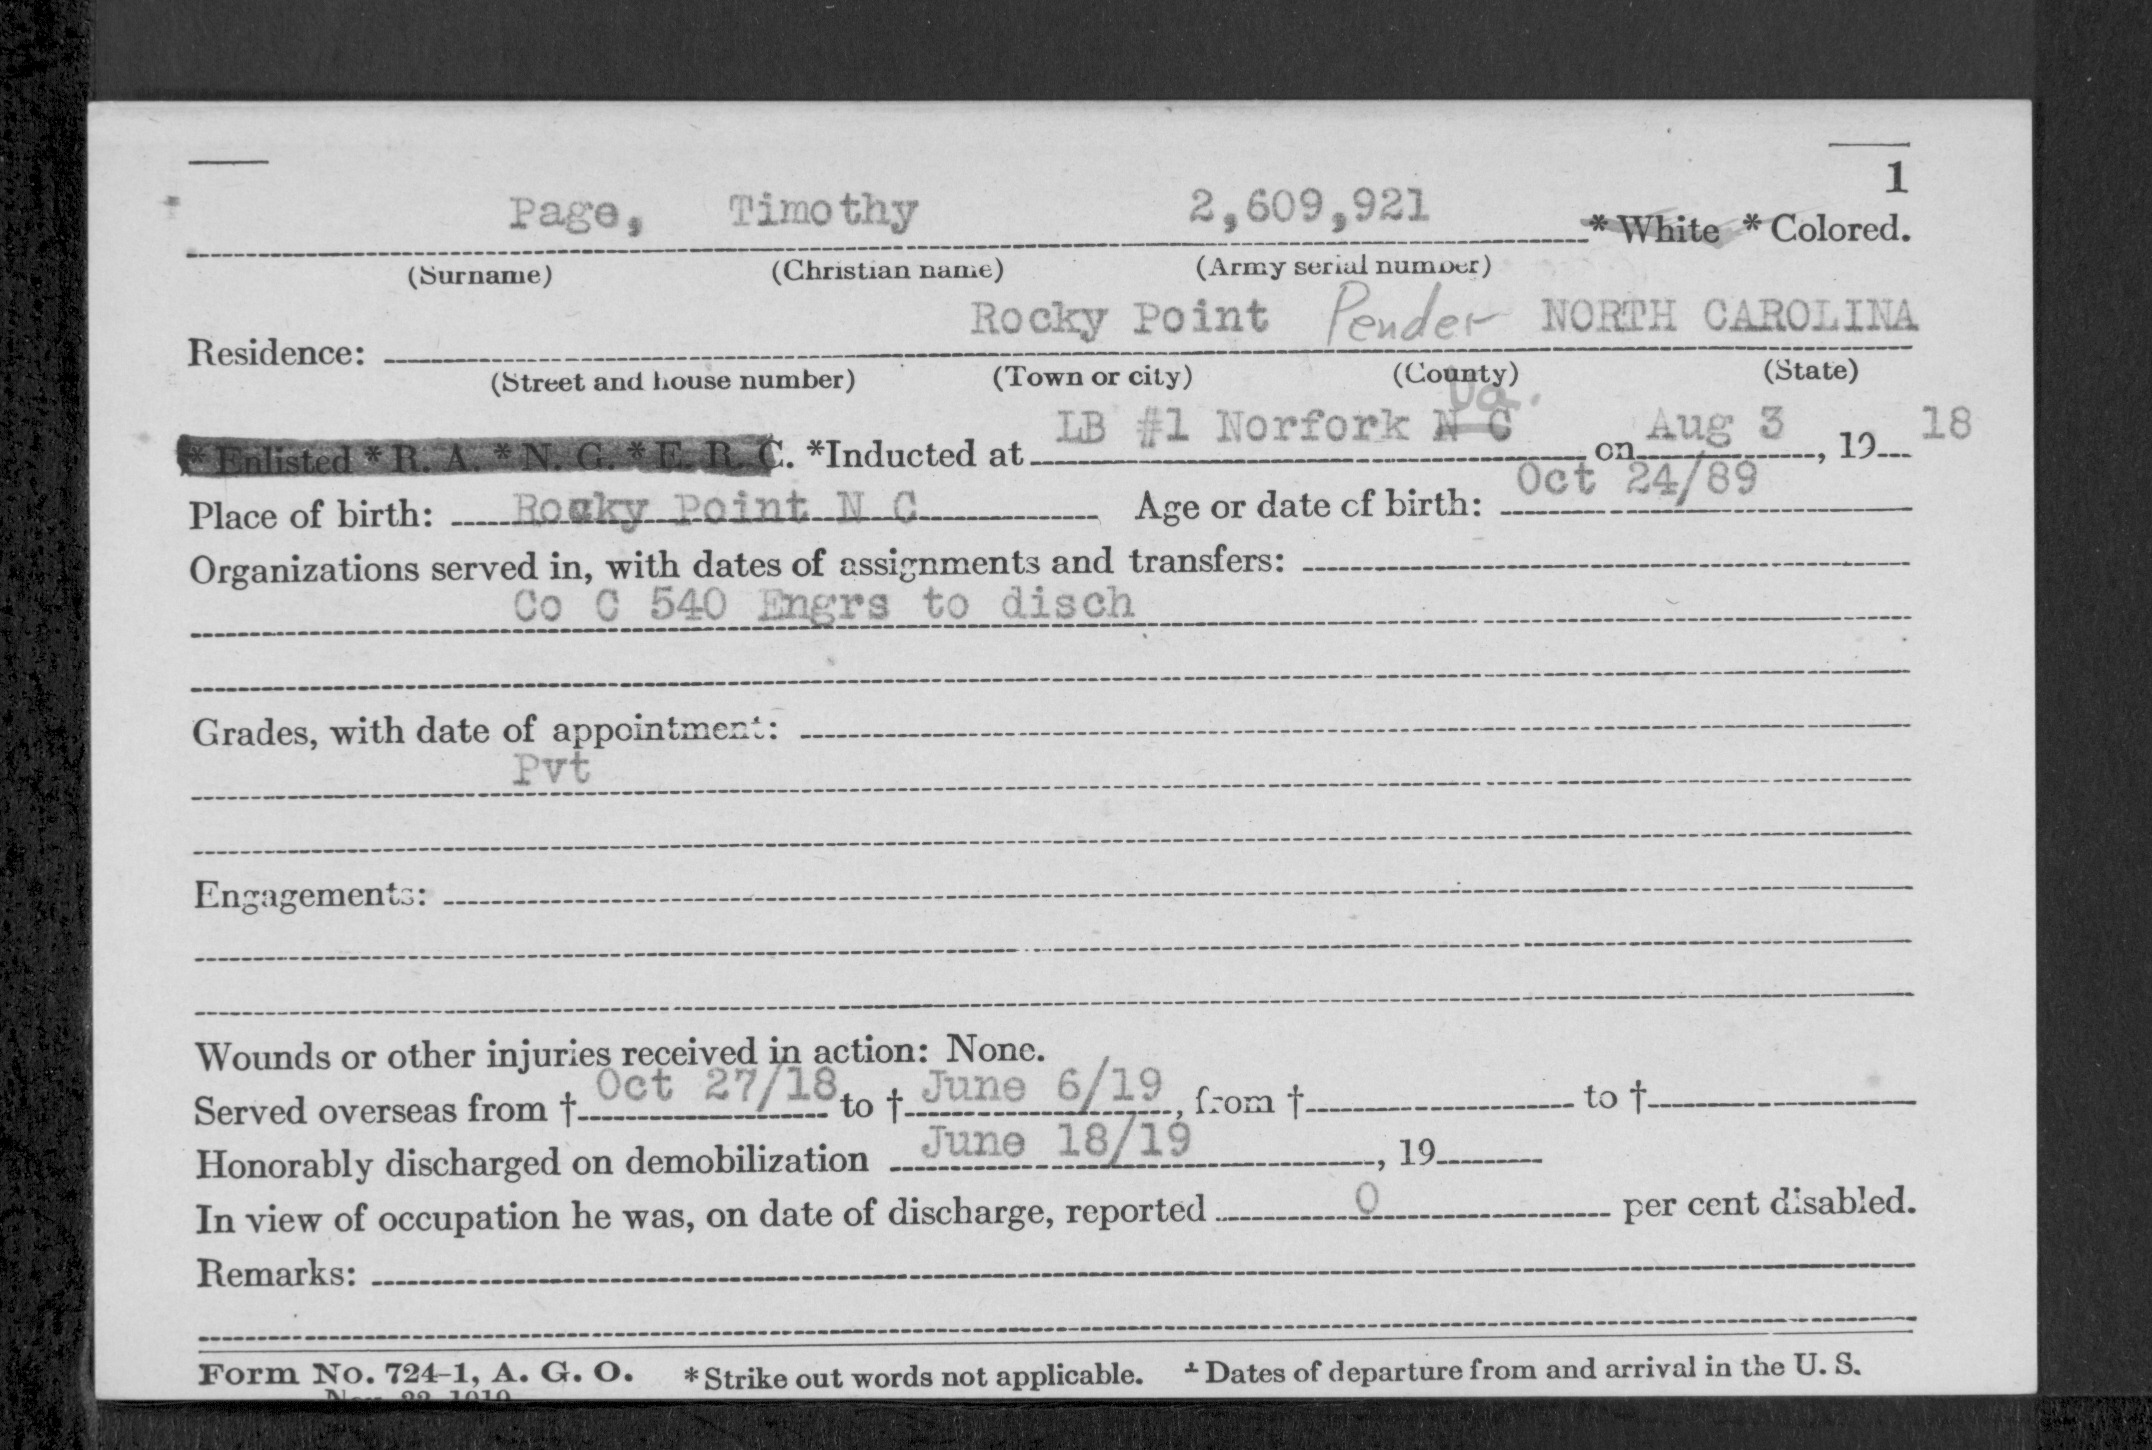 1
Page, Timothy 2,609,921 * White * Colored.
(Surname) (Christian name) (Army serial number)
Rocky Point Pender NORTH CAROLINA
Residence:
(Street and house number) (Town or city) (County) (State)
Va.
* Enlisted * R. A. * N. G. * E. R. C. *Inducted at LB #1 Norfork N C on Aug 3, 19 18
Place of birth: Rocky Point N C Age or date of birth: Oct 24/89
Organizations served in, with dates of assignments and transfers:
Co C 540 Engrs to disch
Grades, with date of appointment:
Pvt
Engagements:
Wounds or other injuries received in action: None.
Served overseas from † Oct 27/18 to † June 6/19, from † to †
Honorably discharged on demobilization June 18/19, 19
In view of occupation he was, on date of discharge, reported 0 per cent disabled.
Remarks:
Form No. 724-1, A. G. O. * Strike out words not applicable. † Dates of departure from and arrival in the U. S.
Nov. 22, 1919